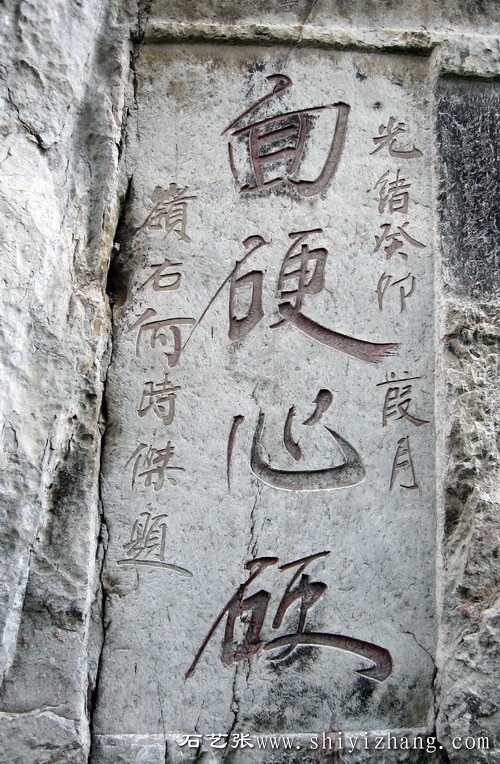 光緒癸卯 葭月
面硬心硬
嶺右何時傑題
石艺张www.shiyizhang.com